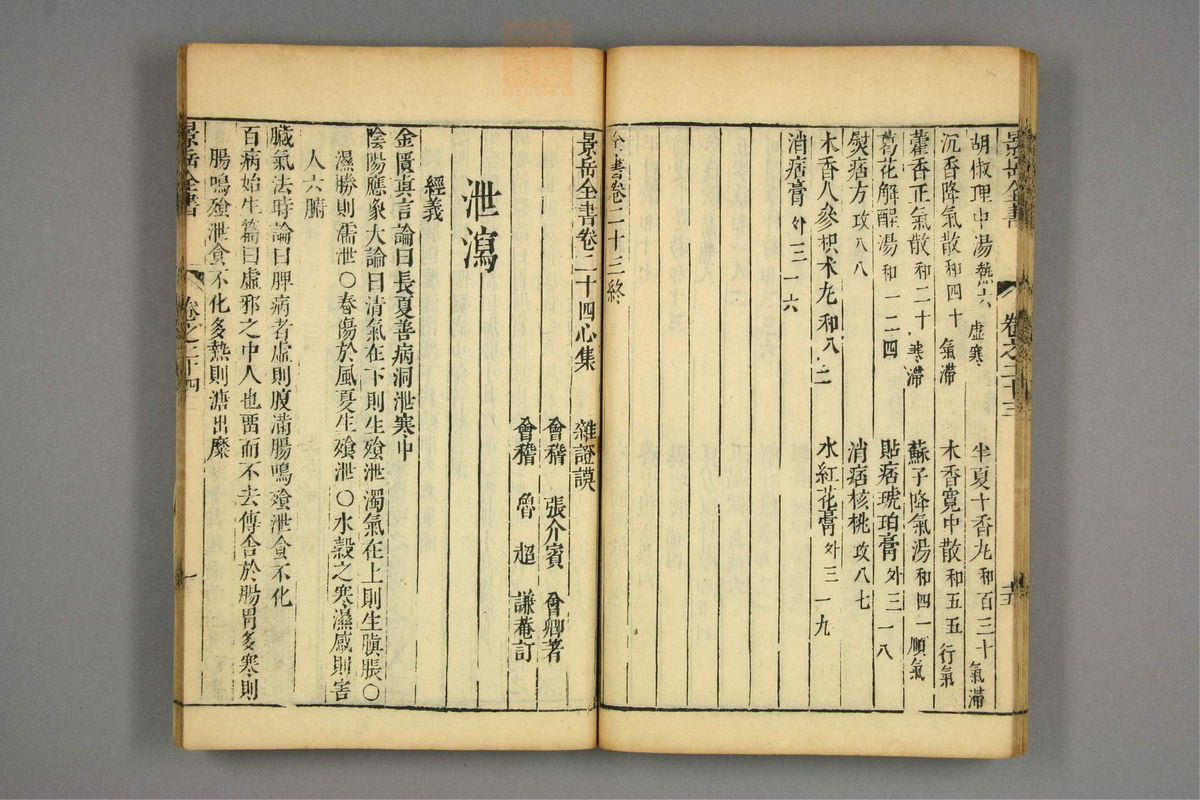 景岳全書 卷之二十三
胡椒理中湯 熱六 虛寒 半夏丁香丸 和百三十 氣滯
沉香降氣散 和四十 氣滯 木香寬中散 和五五 行氣
藿香正氣散 和二十 寒滯 蘇子降氣湯 和四一 順氣
葛花解酲湯 和一二四 貼痞琥珀膏 外三一八
熨痞方 攻八八 消痞核桃 攻八七
木香人參枳朮丸 和八二 水紅花膏 外三一九
消痞膏 外三一六
全書卷二十三終
景岳全書卷二十四心集 雜證謨
會稽 張介賓 會卿著
會稽 魯超 謙菴訂
泄瀉
經義
金匱真言論曰長夏善病洞泄寒中
陰陽應象大論曰清氣在下則生飱泄濁氣在上則生䐜脹○
濕勝則濡泄○春傷於風夏生飱泄○水穀之寒濕感則害
人六腑
臟氣法時論曰脾病者虛則腹滿腸鳴飱泄食不化
百病始生篇曰虛邪之中人也畱而不去傳舍於腸胃多寒則
腸鳴飱泄食不化多熱則溏出麋
景岳全書 卷之二十四 一